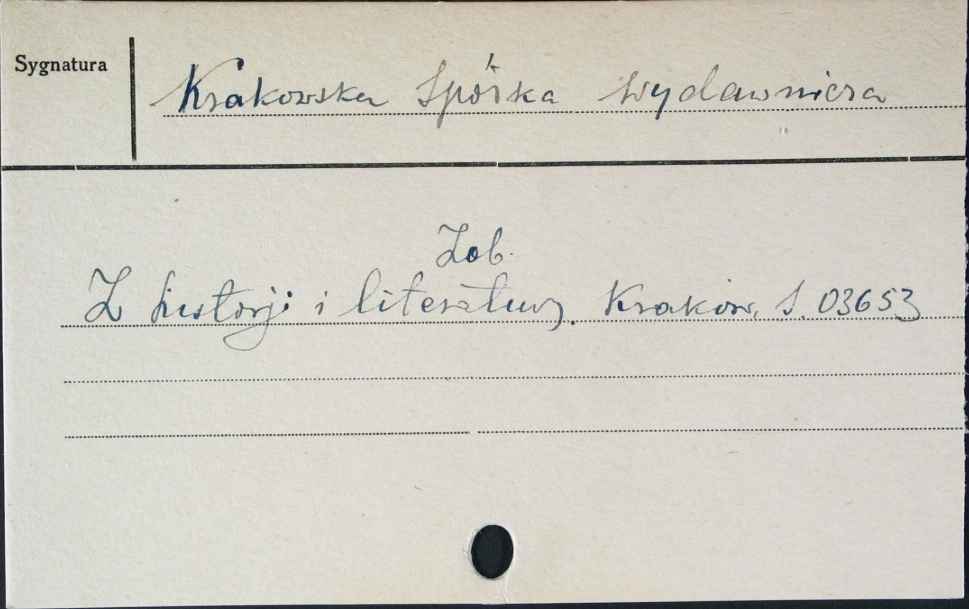 Sygnatura
Krakowska Spółka Wydawnicza
Zob.
Z historji i literatury. Kraków, S. 03653